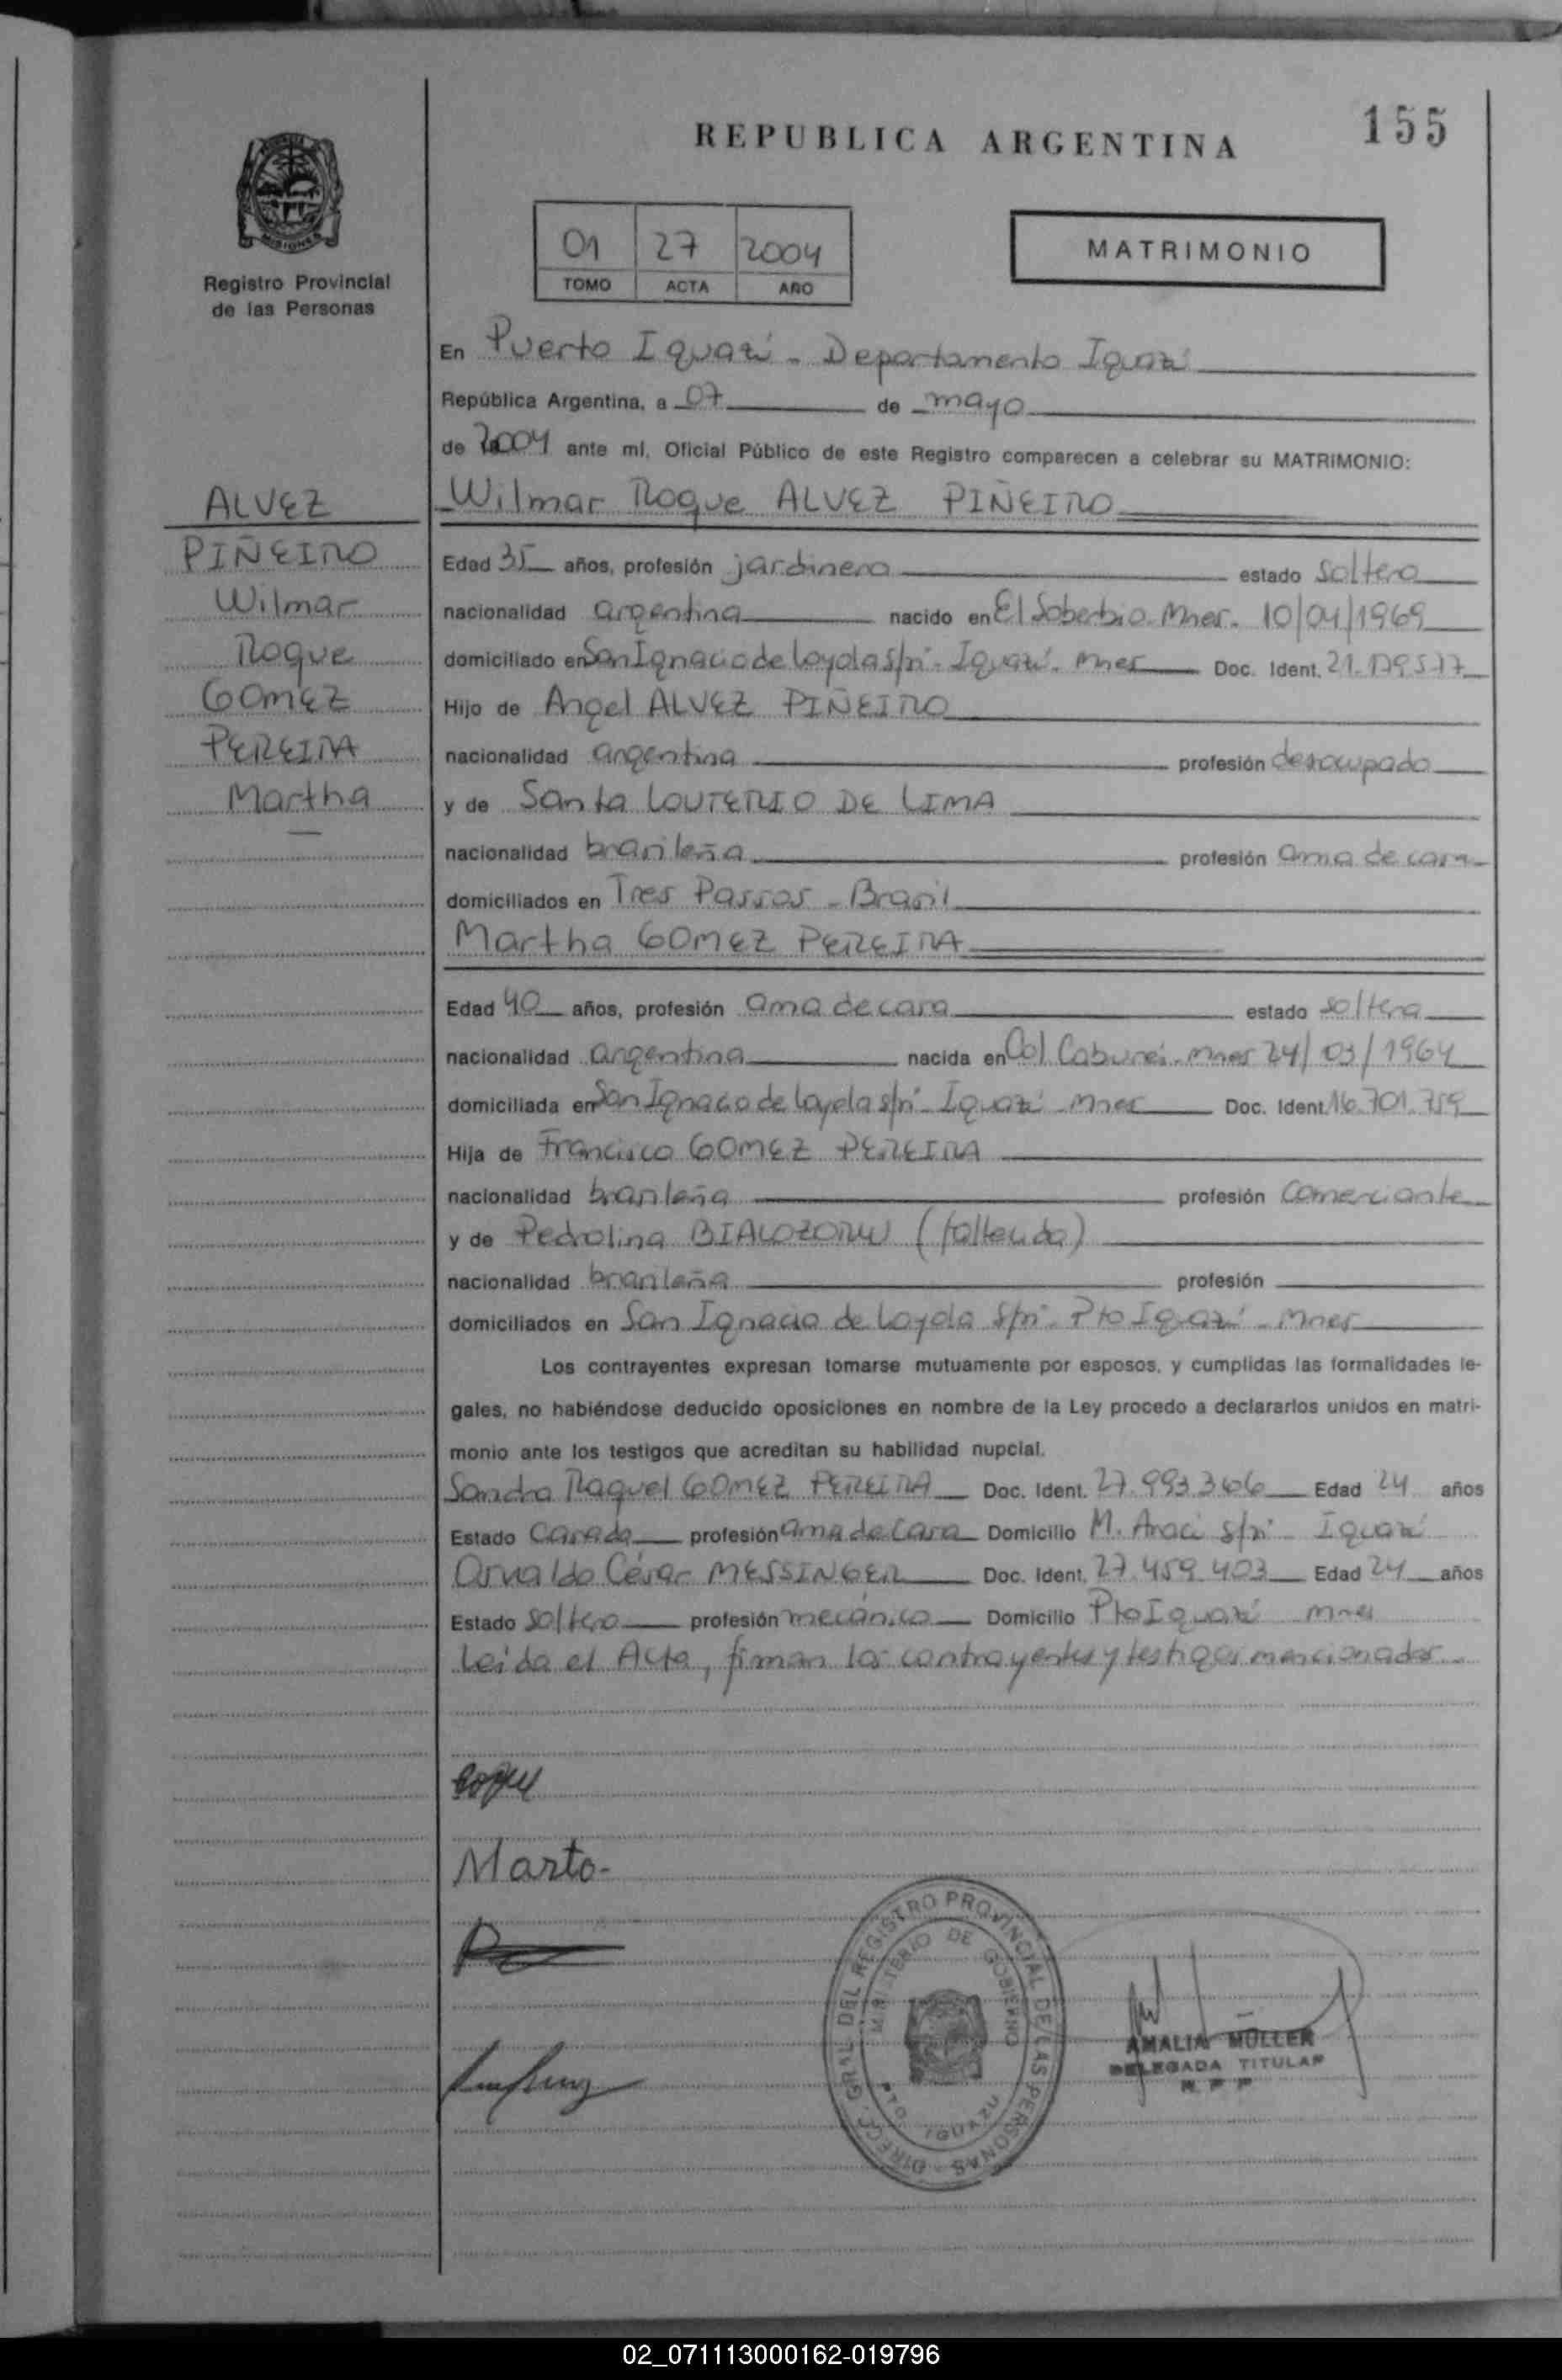 155
REPUBLICA ARGENTINA
MISIONES
Registro Provincial
de las Personas
01 27 2004
TOMO ACTA AÑO
MATRIMONIO
En Puerto Iguazú - Departamento Iguazú
República Argentina, a 07 de mayo
de 2004 ante mí, Oficial Público de este Registro comparecen a celebrar su MATRIMONIO:
ALVEZ
PIÑEIRO
Wilmar
Roque
GOMEZ
PEREIRA
Martha
Wilmar Roque ALVEZ PIÑEIRO
Edad 35 años, profesión jardinero estado soltero
nacionalidad argentina nacido en El Soberbio. Mnes. 10/04/1969
domiciliado en San Ignacio de Loyola s/nº - Iguazú - Mnes Doc. Ident. 21.179.577
Hijo de Angel ALVEZ PIÑEIRO
nacionalidad argentina profesión desocupado
y de Santa LOUTERIO DE LIMA
nacionalidad brasileña profesión ama de casa
domiciliados en Tres Passos - Brasil
Martha GOMEZ PEREIRA
Edad 40 años, profesión ama de casa estado soltera
nacionalidad argentina nacida en Col. Caburei - Mnes 24/03/1964
domiciliada en San Ignacio de Loyola s/nº - Iguazú - Mnes Doc. Ident. 16.701.759
Hija de Francisco GOMEZ PEREIRA
nacionalidad brasileña profesión Comerciante
y de Pedrolina (fallecida)
nacionalidad brasileña profesión
domiciliados en San Ignacio de Loyola s/nº - Pto Iguazú - Mnes
Los contrayentes expresan tomarse mutuamente por esposos, y cumplidas las formalidades le-
gales, no habiéndose deducido oposiciones en nombre de la Ley procedo a declararlos unidos en matri-
monio ante los testigos que acreditan su habilidad nupcial.
Sandra Raquel GOMEZ PEREIRA Doc. Ident. 27.993.366 Edad 24 años
Estado Casada profesión ama de casa Domicilio M. Araci s/nº - Iguazú
Osvaldo César MESSINGER Doc. Ident. 27.459.403 Edad 24 años
Estado soltero profesión mecánico Domicilio Pto Iguazú Mnes
Leida el Acta, firman los contrayentes y testigos mencionados.-
Marta-
DIRECC. GRAL. DEL REGISTRO PROVINCIAL DE LAS PERSONAS
MINISTERIO DE GOBIERNO
PTO. IGUAZU
AMALIA MÜLLER
DELEGADA TITULAR
R P P
02_071113000162-019796